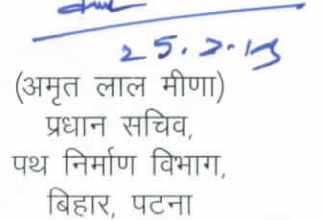 25.2.13
(अमृत लाल मीणा)
प्रधान सचिव,
पथ निर्माण विभाग,
बिहार, पटना